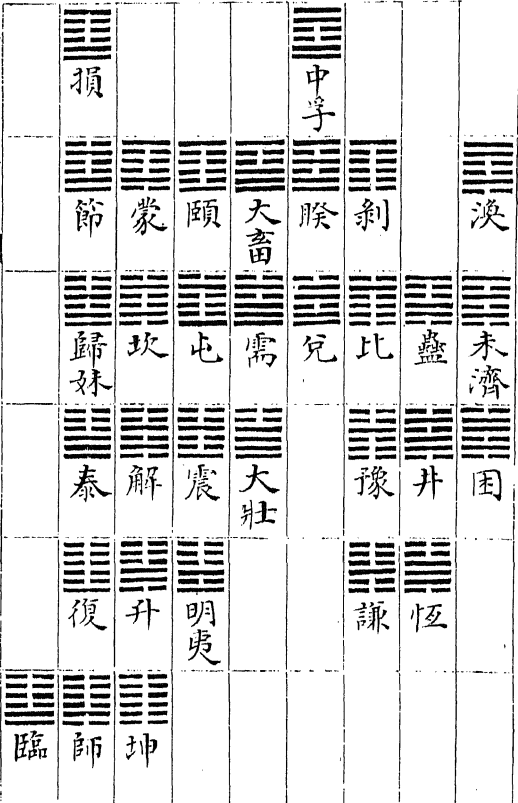 渙
未濟
困
蠱
井
恆
剝
比
豫
謙
中孚
睽
兌
大畜
需
大壯
頤
屯
震
明夷
蒙
坎
解
升
坤
損
節
歸妹
泰
復
師
臨